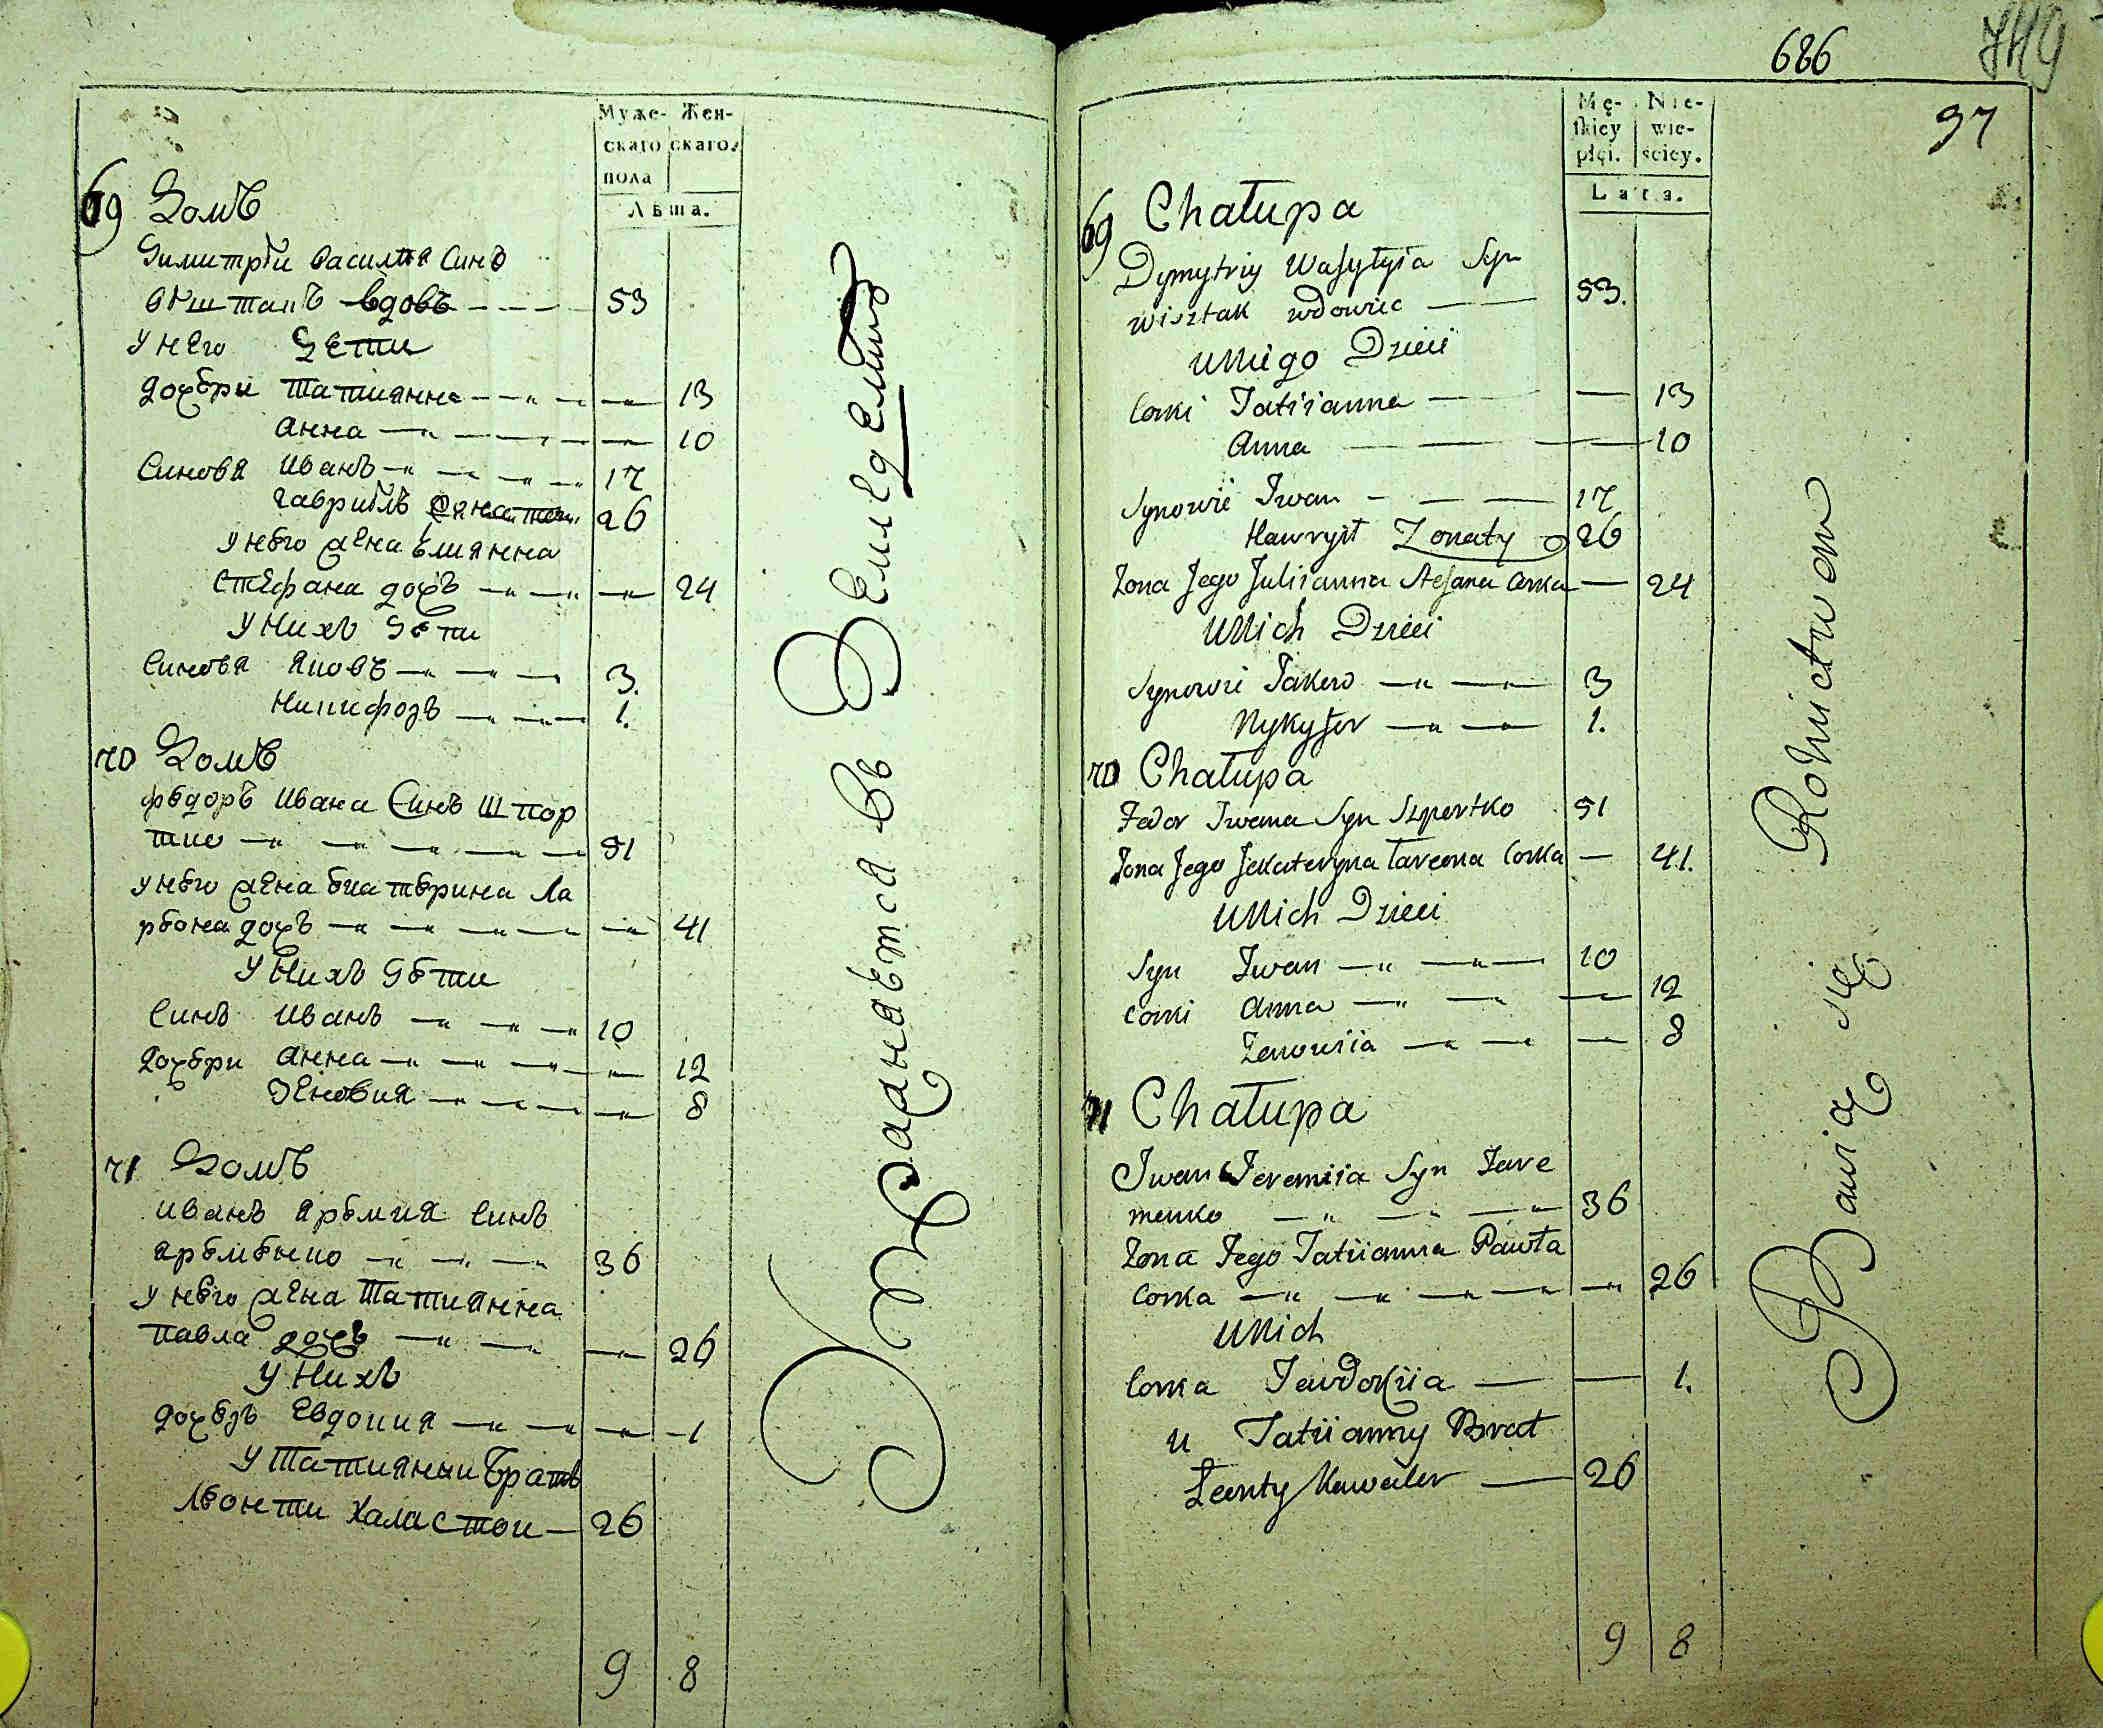 Муже- Жен-
скаго скаго.
пола
Лѣта.
69 Домъ
Димитрѣй василия Синъ
вѣштакъ вдовъ 53
У нЕго дЕти
дочери татиянна 13
анна 10
Синовя иванъ 17
гаврилъ 26
У него жЕна
стЕфана дочъ 24
У нихъ дети
Синовя яковъ 3.
никифоръ 1.
70 Домъ
федоръ ивана Синъ шпор
тко 51
У него жЕна екатерина ла
рвона дочъ 41
У нихъ дети
Синъ иванъ 10
дочери анна 12
зЕновия 8
71 Домъ
иванъ яремия Синъ
яременко 36
У него жЕна татиянна
павла дочъ 26
У нихъ
дочеръ Евдокия 1
У татиянни братъ
леонти халастои 26
9 8
Упражнаѣтса въ ЗемлЕдЕлии
686
749
97
Mę- Nie-
ſkiey wie-
płci. ściey.
Lata.
69 Chałupa
Dymytriy Wasyłyia Syn
wisztak wdowiec 53.
U Niego Dzieci
Corki Tatiianna 13
Anna 10
Synowie Iwan 17
Hawryił Zonaty 26
Zona Jego Juliianna Stefana Corka 24
U Nich Dzieci
Synowie Jakow 3
Nykyfor 1.
70 Chałupa
Fedor Iwana Syn Szportko 51
Zona Jego Jekateryna Corka 41.
U Nich Dzieci
Syn Iwan 10
Corki Anna 12
Zenowiia 8
71 Chałupa
Iwan Jeremiia Syn Jare
menko 36
Zona Jego Tatiianna Pawła
Corka 26
U Nich
Corka Jewdokiia 1.
u Tatiianny Brat
Leonty Kawaler 26
9 8
Bawią się Rolnictwem